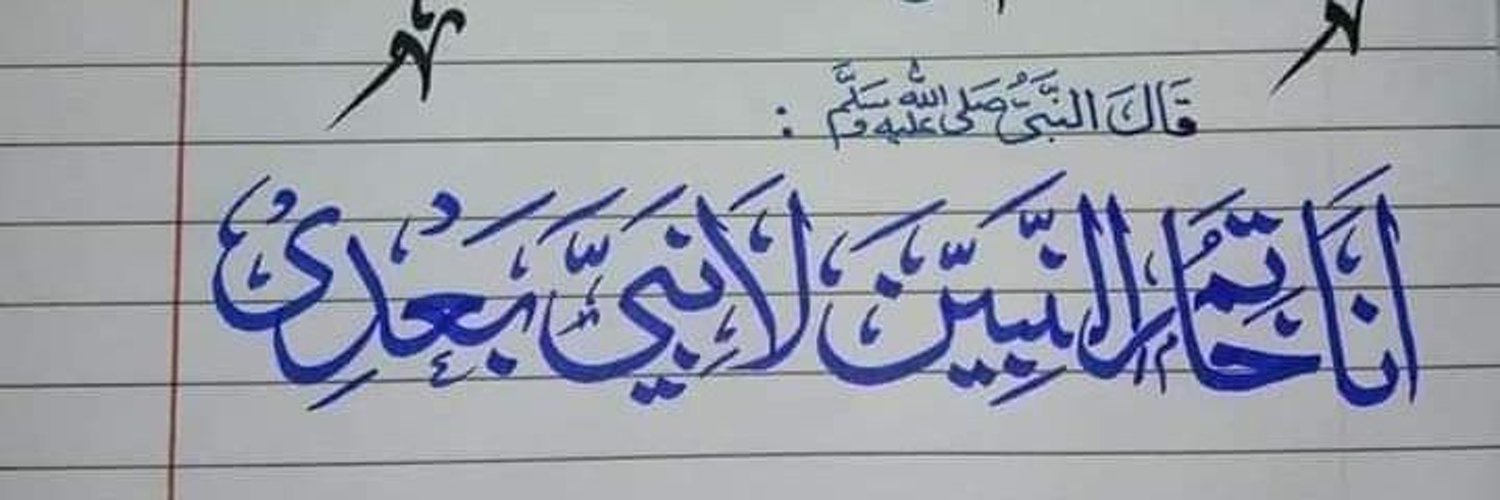 قَالَ النَّبِيُّ صَلَى الله عليه وسَلَّمَ :
اَنَا خَاتَمُ النَّبِيِّنَ لَا نَبِيَّ بَعْدِيْ